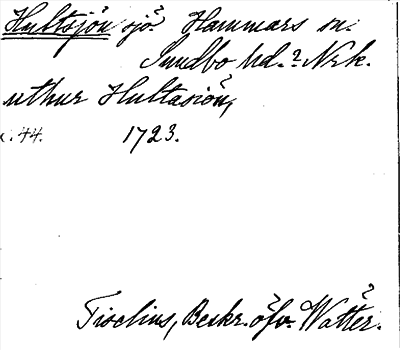 Hultsjön sjö? Hammars sn.
Sundbo hd.? Nrk.
uthur Hultasiön,
s. 44. 1723.
Tiselius, Beskr. öfv. Watter.